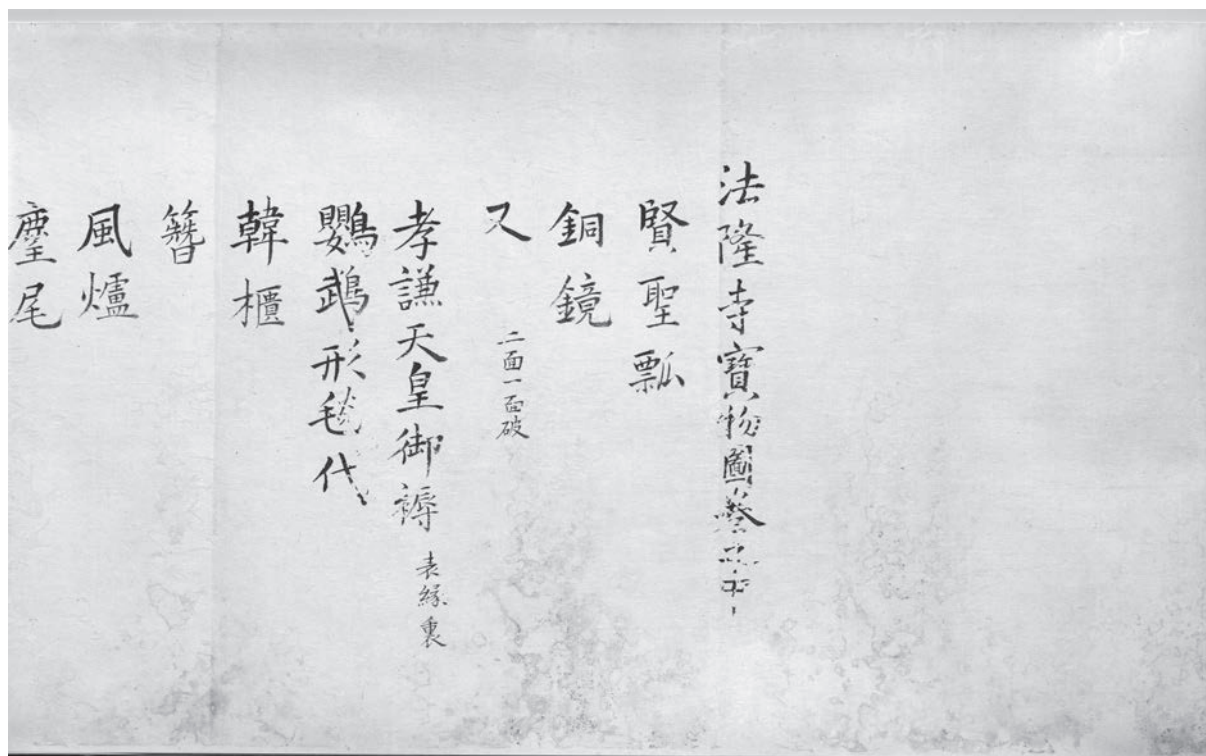 法隆寺寶物圖巻之中
賢聖瓢
銅鏡
又 二面一面破
孝謙天皇御褥 表縁裏
鸚鵡形毛毯代
韓櫃
簪
風爐
麈尾